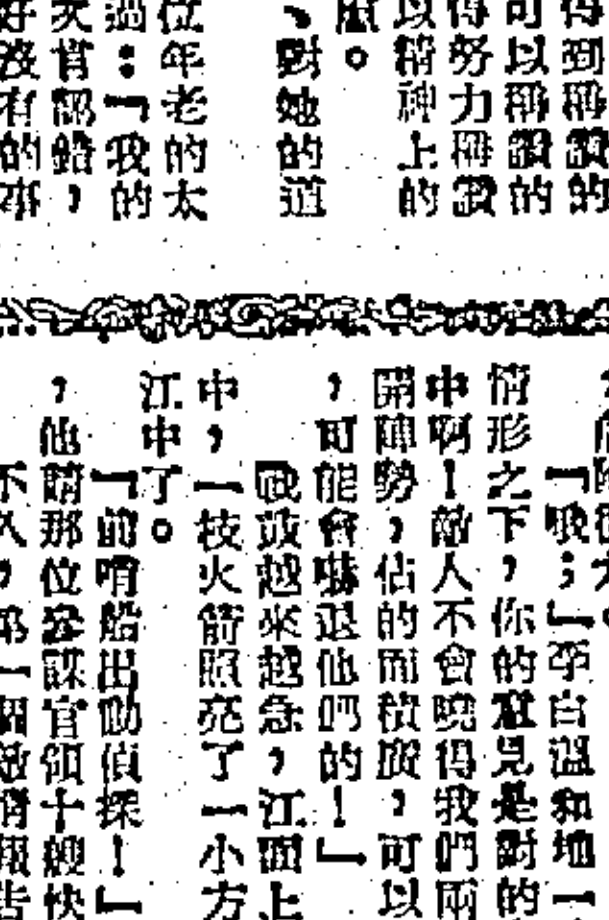 得到稱讚的
可以稱讚的
得努力稱讚
以精神上的
。
、對她的道
位年老的太
過：「我的
次官認錯，
好沒有的事
「哦；」李白溫和地一
情形之下，你的意見是對的
中啊！敵人不會曉得我們兩
開陣勢，佔的面積廣，可以
，可能會嚇退他們的！」
戰鼓越來越急，江面上
中，一枝火箭照亮了一小方
江中了。
「前哨船出動偵探！」
，他請那位參謀官領十艘快
不久，第一個敵情報告